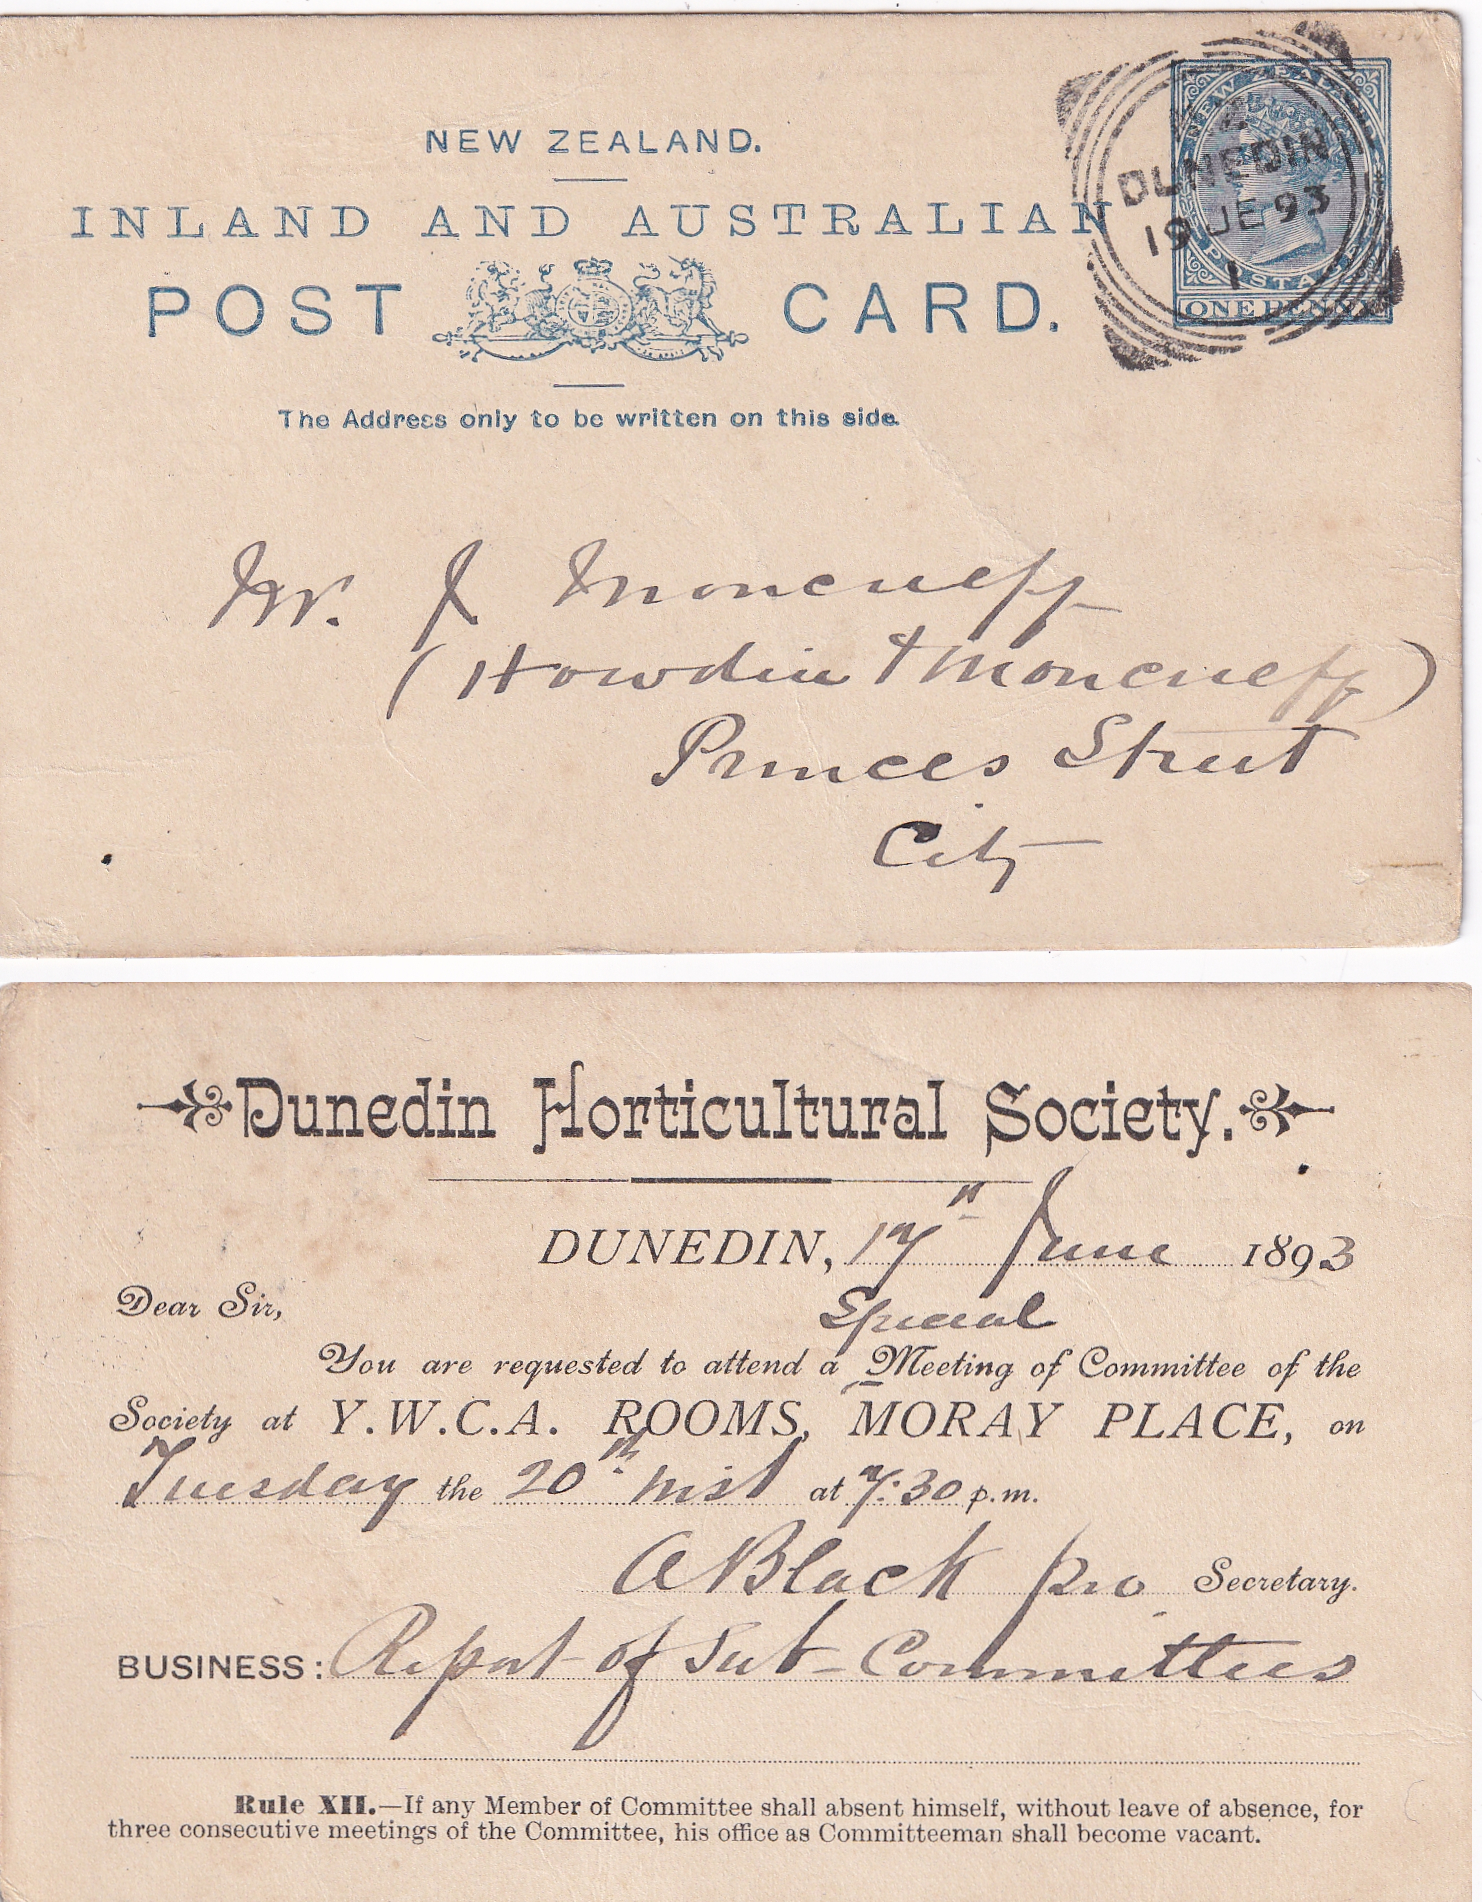 NEW ZEALAND.
INLAND AND AUSTRALIAN
POST CARD.
The Address only to be written on this side.
NEW ZEALAND
POSTAGE
ONE PENNY
DUNEDIN
19 JE 93
1
Mr. J Moncrieff
(Howdin & Moncrieff)
Princes Street
City
Dunedin Horticultural Society.
DUNEDIN, 17th June 1893
Dear Sir,
Special
You are requested to attend a Meeting of Committee of the
Society at Y.W.C.A. ROOMS, MORAY PLACE, on
Tuesday the 20th inst at 7.30 p.m.
A Black pro Secretary.
BUSINESS: Report of Sub-Committees
Rule XII.—If any Member of Committee shall absent himself, without leave of absence, for
three consecutive meetings of the Committee, his office as Committeeman shall become vacant.